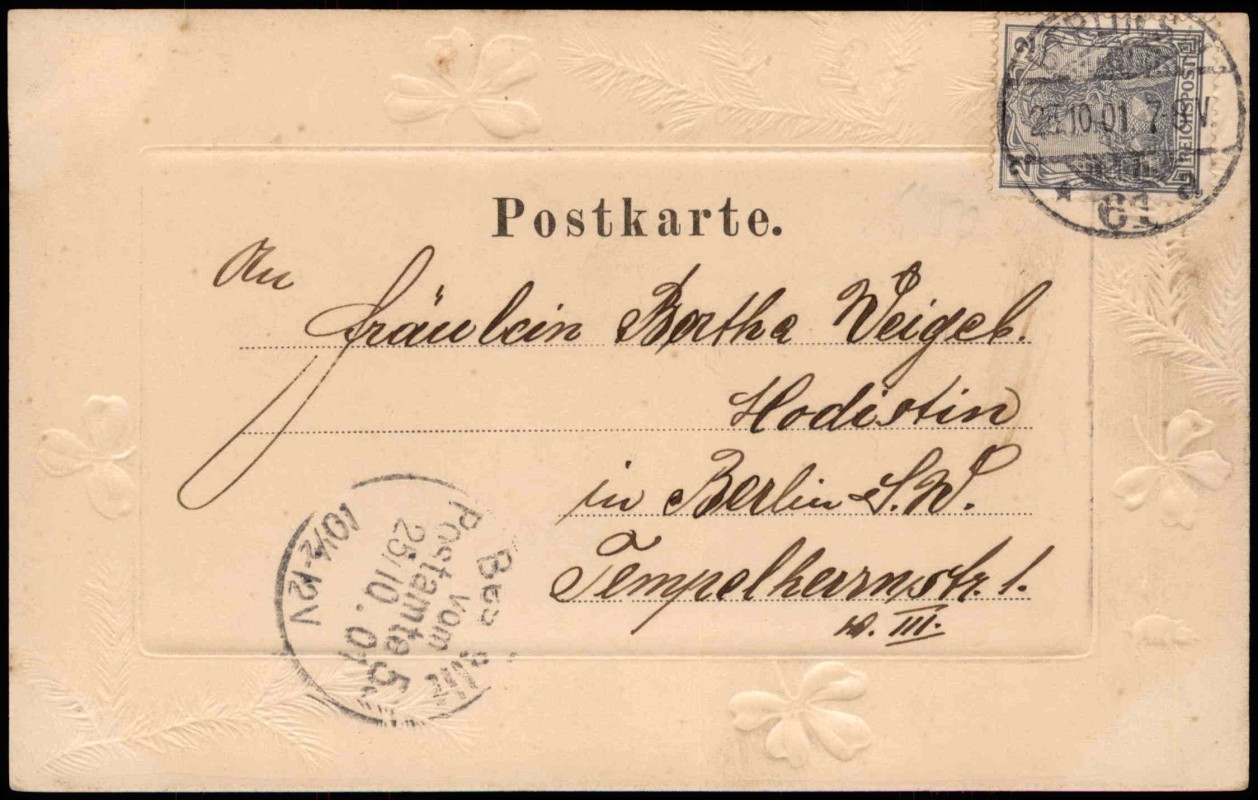 Postkarte.
An
Fräulein Bertha Weigel.
Modistin
in Berlin S.W.
Tempelherrnstr. 1.
III.
2
2
REICHSPOST
BERLIN S.W.
.10.01. 7-8V
* 61 a
vom
Postamte 5
25/10.01
10½-12V